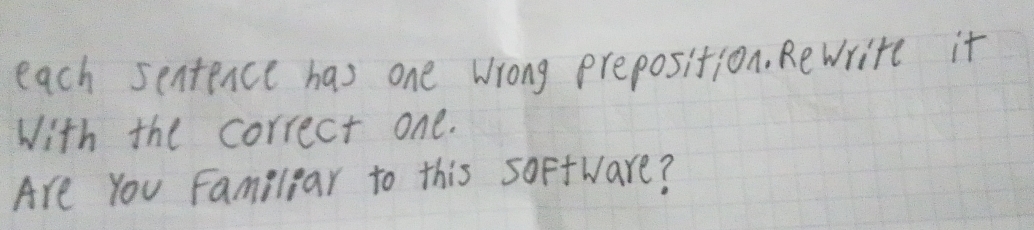 each sentence has one wrong preposition. Rewrite it
With the correct one.
Are You Familiar to this software?